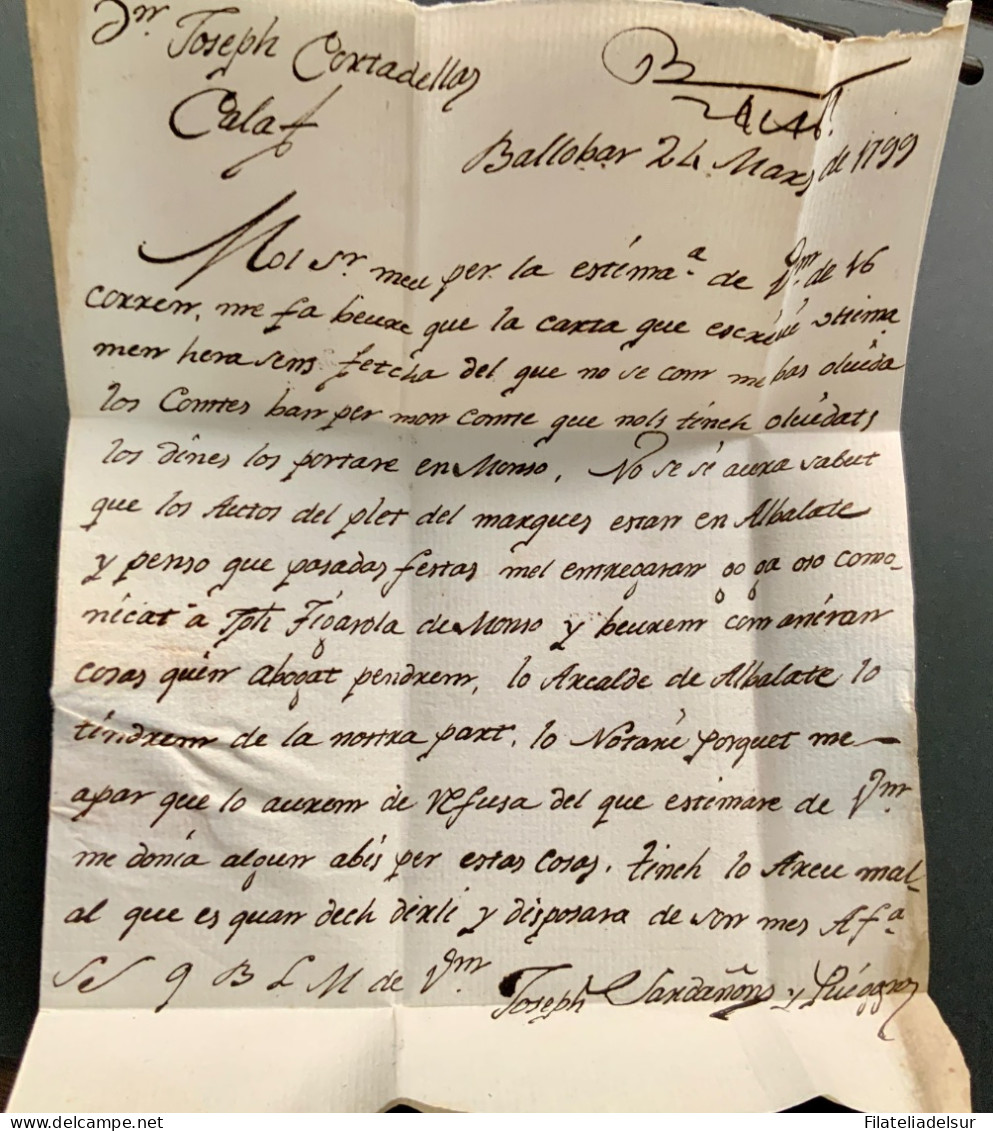 Dn. Joseph Cortadellas
Calaf
Ballobar 24 Mars de 1799
Mol Sr. meu per la estima.ª de Vm. de 16
corren, me fa beure que la carta que escriuí ultima
men hera sens fetcha del que no se com me bas oluida
los Comtes ban per mon comte que nols tinch oluidats
los dines los portare en Monso, No se si aura sabut
que los Autos del plet del marques estan en Albalate
y penso que pasadas festas mel entregaran oo ga oso como-
nicat a Jph Figarola de Monso y beurem com aniran
cosas quin abogat pendrem, lo Arcalde de Albalate lo
tindrem de la nostra part, lo Notari Porquet me
apar que lo aurem de Refusa del que estimare de Vm.
me donia algun abis per estas cosas, tinch lo Areu mal-
al que es quan dech dirli y disposara de son mes Afª
SS q B L M de Vm.
Joseph Sardañons y Puiggros
Filateliadelsur